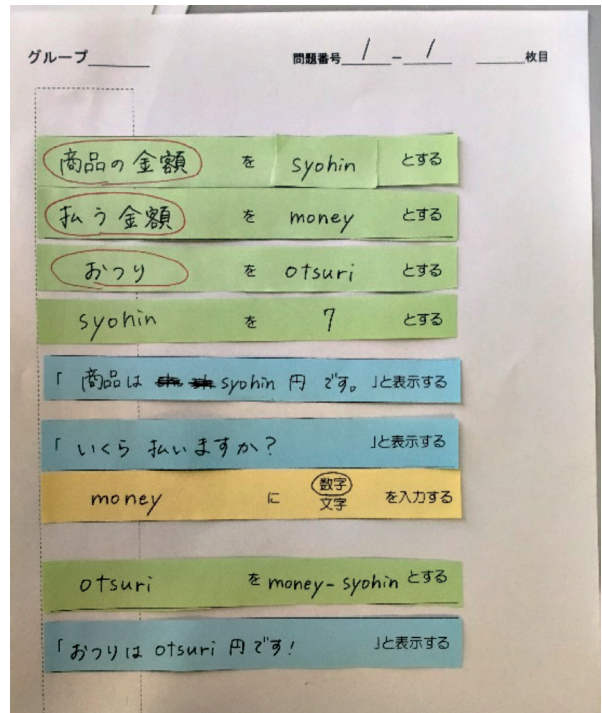 グループ______ 問題番号 1 - 1 ______枚目
商品の金額 を syohin とする
払う金額 を money とする
おつり を otsuri とする
syohin を 7 とする
「 商品は syohin 円 です。 」と表示する
「 いくら 払いますか? 」と表示する
money に 数字 を入力する
文字
otsuri を money-syohin とする
「おつりは otsuri 円です! 」と表示する